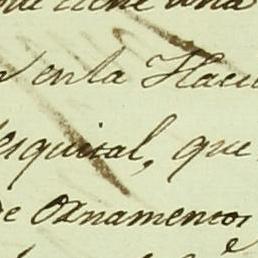 tiene una
en la Haci
esquital, que
de Oxnamentos